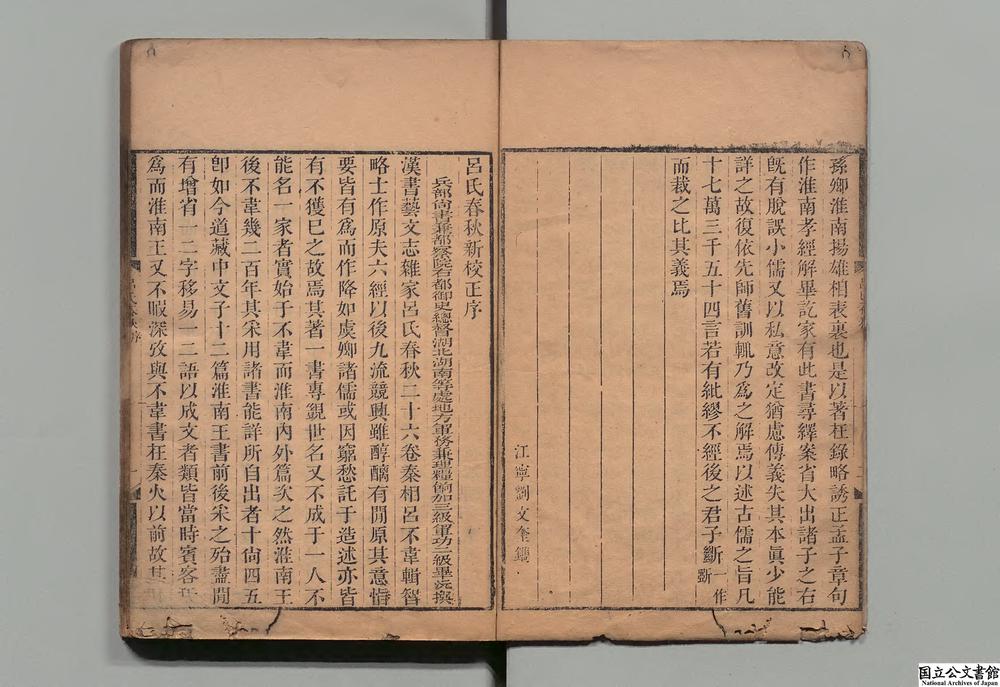 孫卿淮南揚雄相表裏也是以著在錄略誘正孟子章句
作淮南孝經解畢訖家有此書尋繹案省大出諸子之右
既有脫誤小儒又以私意改定猶慮傳義失其本眞少能
詳之故復依先師舊訓輒乃爲之解焉以述古儒之旨凡
十七萬三千五十四言若有紕繆不經後之君子斷一作㫁
而裁之比其義焉
江寧劉文奎鐫
呂氏春秋新校正序
兵部尙書兼都察院右都御史總督湖北湖南等處地方軍務兼理糧餉加三級軍功二級畢沅撰
漢書藝文志雜家呂氏春秋二十六卷秦相呂不韋輯智
略士作原夫六經以後九流競興雖醇醨有閒原其意恉
要皆有爲而作降如虞卿諸儒或因窮愁託于造述亦皆
有不獲巳之故焉其著一書專覬世名又不成于一人不
能名一家者實始于不韋而淮南內外篇次之然淮南王
後不韋幾二百年其采用諸書能詳所自出者十尙四五
卽如今道藏中文子十二篇淮南王書前後采之殆盡閒
有增省一二字移易一二語以成文者類皆當時賓客所
爲而淮南王又不暇深攷與不韋書在秦火以前故其
国立公文書館
National Archives of Japan